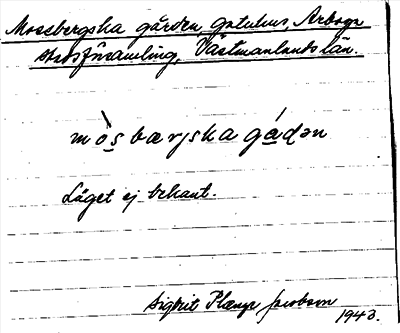 Mossbergska gården, gatuhus, Arboga
stadsförsamling, Västmanlands län.
mòs̲bærjska gá̲ɖən
Läget ej bekant.
Sigbrit Plænge Jacobson
1943.